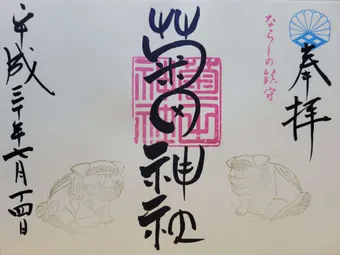 奉拝
ならしの鎮守
菊田神社
菊田神社
平成三十年七月十四日